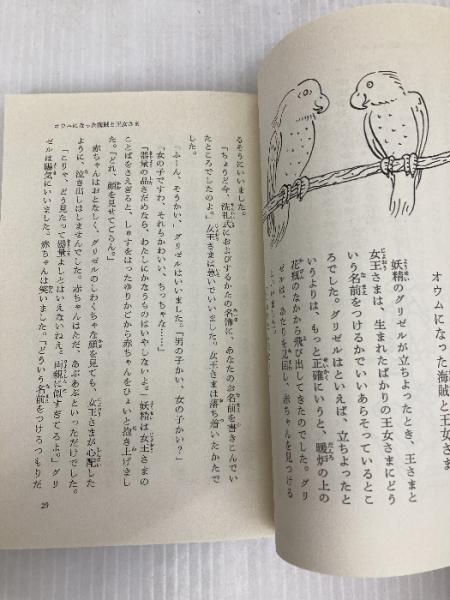 オウムになった海賊と王女さま
妖精のグリゼルが立ちよったとき、王さまと
女王さまは、生まれたばかりの王女さまにどう
いう名前をつけるかでいいあらそっているとこ
ろでした。グリゼルはといえば、立ちよったと
いうよりは、もっと正確にいうと、暖炉の上の
花瓶のなかから飛び出してきたのでした。グリ
ゼルは、あたりを見回し、赤ちゃんを見つける
オウムになった海賊と王女さま
るそうにいいました。
「ちょうど今、洗礼式におよびするかたの名簿に、あなたのお名前を書きこんでい
たところでしたのよ。」女王さまは急いでいいました。女王さまは落ち着いたかたで
した。
「ふーん、そうかい。」グリゼルはいいました。「男の子かい、女の子かい？」
「女の子ですわ、それもかわいい、ちっちゃな……」
「器量の品さだめなら、わたしにかなうものはいやしないよ。」妖精は女王さまの
ことばをさえぎると、しゅすをはったゆりかごから赤ちゃんをひょいと抱き上げまし
た。「どれ、顔を見せてごらん。」
赤ちゃんはおとなしく、グリゼルのしわくちゃな顔を見ても、女王さまが心配した
ように、泣き出しはしませんでした。赤ちゃんはただ、あぶあぶといっただけでした。
「こりゃ、どう見たって器量よしとはいえないねえ。両親に似すぎてるよ。」グリ
ゼルは陽気にいいました。赤ちゃんは笑いました。「どういう名前をつけるつもりだ
29